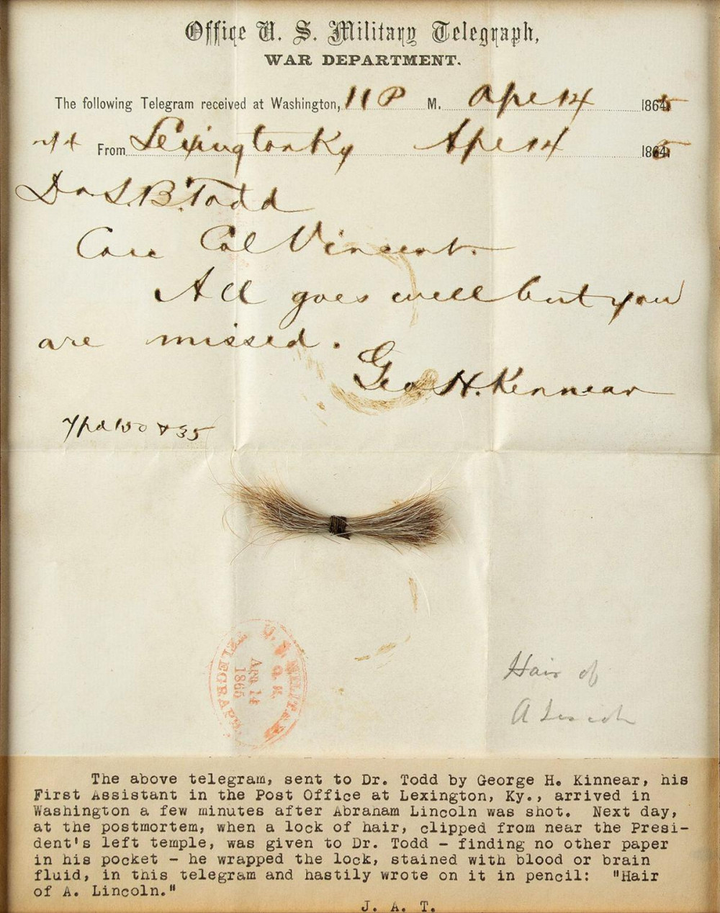 Office U. S. Military Telegraph,
WAR DEPARTMENT.
The following Telegram received at Washington, 11 P M. Apr 14 1865
From Lexington Ky Apr 14 1865
Dr L. B. Todd
Care Col Vincent.
All goes well but you
are missed.
Geo. H. Kinnear
U. S. MILITARY
TELEGRAPH
Apr 14
1865
Hair of
A Lincoln
The above telegram, sent to Dr. Todd by George H. Kinnear, his
First Assistant in the Post Office at Lexington, Ky., arrived in
Washington a few minutes after Abraham Lincoln was shot. Next day,
at the postmortem, when a lock of hair, clipped from near the Presi-
dent's left temple, was given to Dr. Todd - finding no other paper
in his pocket - he wrapped the lock, stained with blood or brain
fluid, in this telegram and hastily wrote on it in pencil: "Hair
of A. Lincoln."
J. A. T.